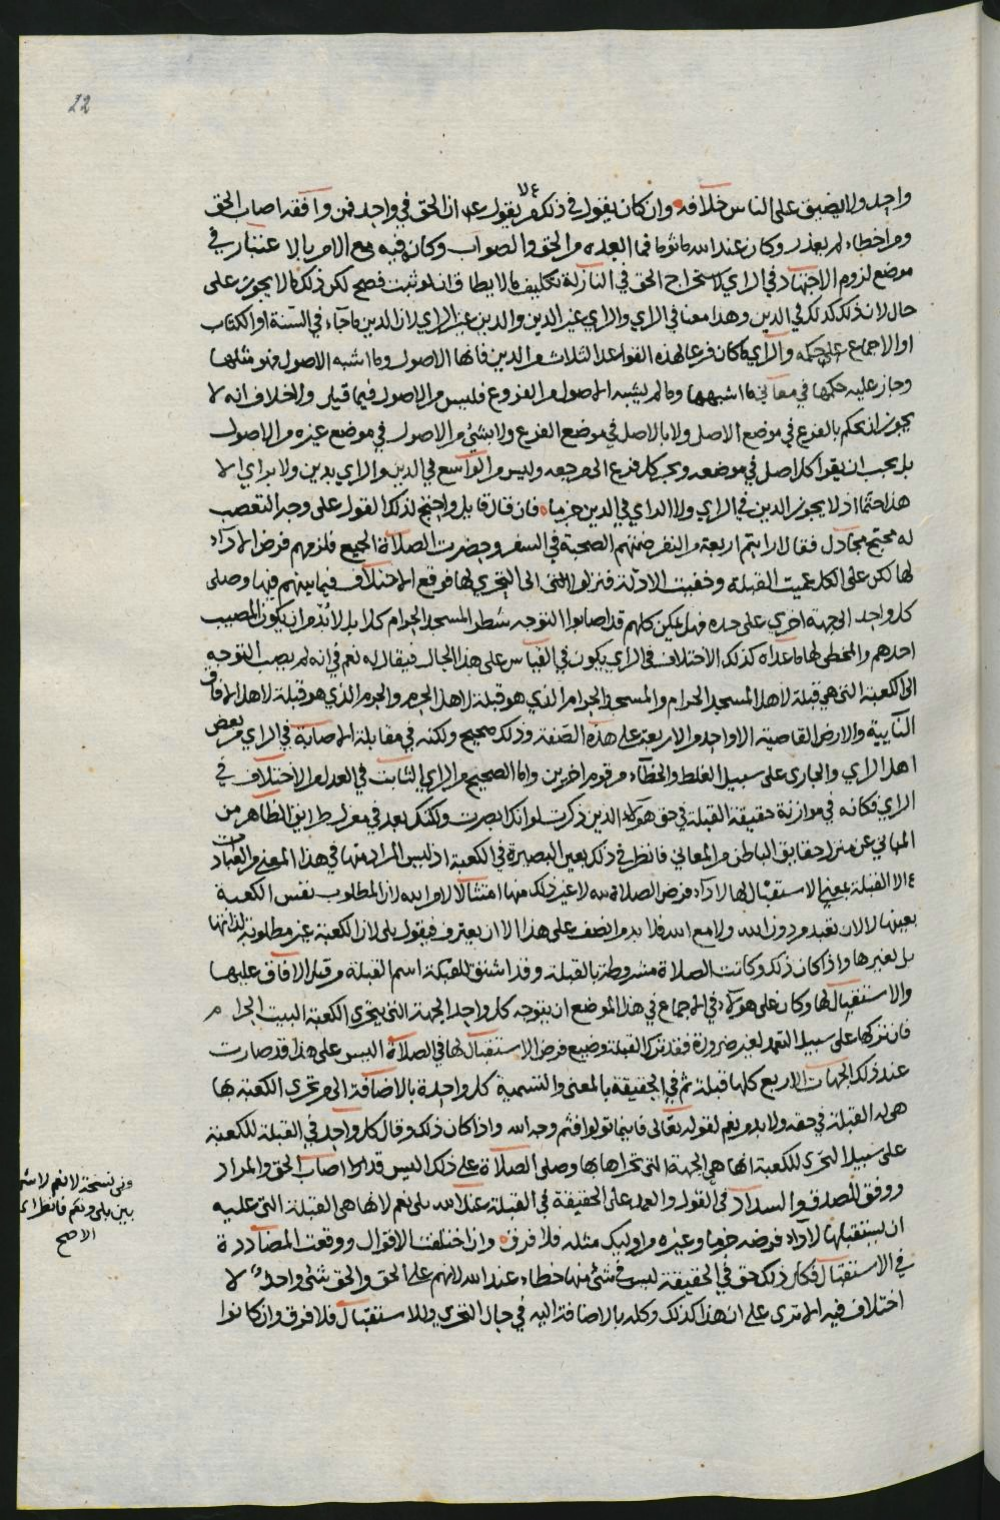 22
واحد ولا يضيق على الناس خلافه وان كان يقول في ذلك من يقول على ان الحق في واحد فمن وافقه اصاب الحق
ومن اخطاه لم يعذر وكان عند الله ماثوما فما ابعده من الحق والصواب وكان فيه مع الامر بالاعتبار في
موضع لزوم الاجتهاد في الراي لاستخراج الحق في النازلة تكليف ما لا يطاق ان لو ثبت فصح لكن ذلك ما لا يجوز على
حال لان ذلك كذلك في الدين وهذا معنا في الراي والراي غير الدين والدين غير الراي لان الدين ما جاء في السنة او الكتاب
او الاجماع على حكمه والراي ما كان فرعا لهذه القواعد الثلاث من الدين فانها الاصول وما اشبه الاصول فهو مثلها
وجاز عليه حكمها في معاني ما اشبهها وما لم يشبه الاصول من الفروع فليس من الاصول فيما قيل ولا خلاف انه لا
يجوز ان يحكم بالفرع في موضع الاصل ولا بالاصل في موضع الفرع ولا بشيء من الاصول في موضع غيره من الاصول
بل يجب ان يقر كل اصل في موضعه ويجر كل فرع الى مرجعه وليس من الواسع في الدين والراي بدين ولا براي الا
هذا حتما اذ لا يجوز الدين في الراي ولا الراي في الدين جزما فان قال قايل واحتج لذلك القول على وجه التعصب
له محتج مجادل فقال ارايتم اربعة من النفر ضمتهم الصحبة في السفر وحضرت الصلاة الجميع فلزمهم فرض الاداء
لها لكن على الكل عميت القبلة وخفيت الادلة فنزلوا الى التحري لها فوقع الاختلاف فيما بينهم فيها وصلى
كل واحد الى جهة اخرى على حده فهل يمكن كلهم قد اصابوا التوجه شطر المسجد الحرام كلا بل لا بد من ان يكون المصيب
احدهم والمخطي لها ما عداه كذلك الاختلاف في الراي يكون في القياس على هذا الحال فيقال له نعم في انه لم يصب التوجه
الى الكعبة التي هي قبلة لاهل المسجد الحرام والمسجد الحرام الذي هو قبلة لاهل الحرم والحرم الذي هو قبلة لاهل الافاق
النآيية والارض القاصية الا واحد من الاربعة على هذه الصفة وذلك صحيح ولكنه في مقابلة الاصابة في الراي من بعض
اهل الراي والجاري على سبيل الغلط والخطاء من قوم اخرين واما الصحيح من الراي الثابت في العدل من الاختلاف في
الراي فكانه في موازنة حقيقة القبلة في حق هؤلاء الذين ذكرت لو انك ابصرت ولكنك بعد في معزل طرايق الظاهر من
المباني عن منزل حقايق الباطن من المعاني فانظر في ذلك بعين البصيرة في الكعبة اذ ليس المراد منها في هذا المعنى من العبادات
الا القبلة بمعنى الاستقبال لها لاداء فرض الصلاة لله لا غير ذلك منها امتثالا لاوامر الله لان المطلوب نفس الكعبة
بعينها لالان تعبد من دون الله ولا مع الله فلا بد من انصف على هذا الا ان يعترف فيقول بلى لان الكعبة غير مطلوبة لذاتها
بل لغيرها واذا كان ذلك وكانت الصلاة مشروطة بالقبلة وقد اشتق للقبلة اسم القبلة من قبل الاقبال عليها
والاستقبال لها وكان على هؤلاء في الاجماع في هذا الموضع ان يتوجه كل واحد الجهة التي يتحرى الكعبة البيت الحرام
فان تركها على سبيل التعمد لغير ضرورة فقد ترك القبلة وضيع فرض الاستقبال لها في الصلاة اليس على هذا قد صارت
عند ذلك الجهات الاربع كلها قبلة ثم في الحقيقة بالمعنى والتسمية كل واحدة بالاضافة الى من تحرى الكعبة بها
هي له القبلة في حقه ولا بد من نعم لقوله تعالى فاينما تولوا فثم وجه الله واذا كان ذلك وقال كل واحد في القبلة للكعبة
على سبيل التحري للكعبة انها هي الجهة التي تحراها بها وصلى الصلاة على ذلك اليس قد اصاب الحق والمراد
ووفق للصدق والسداد في القول والعمل على الحقيقة في القبلة عند الله بلى نعم لانها هي القبلة التي عليه
ان يستقبلها لاداء فرضه جزما وغيره من اوليك مثله فلا فرق وان اختلفت الاقوال ووقعت المضاددة
في الاستقبال فكل ذلك حق في الحقيقة ليس في شيء منها خطاء عند الله لانهم على الحق والحق شيء واحد لا
اختلاف فيه الا ترى على ان هذا كذلك وكله بالاضافة اليه في حال التحري والاستقبال فلا فرق وان كانوا
وفي نسخة لا نعم لا شر
بين بلى ونعم فانظر اي
الاصح